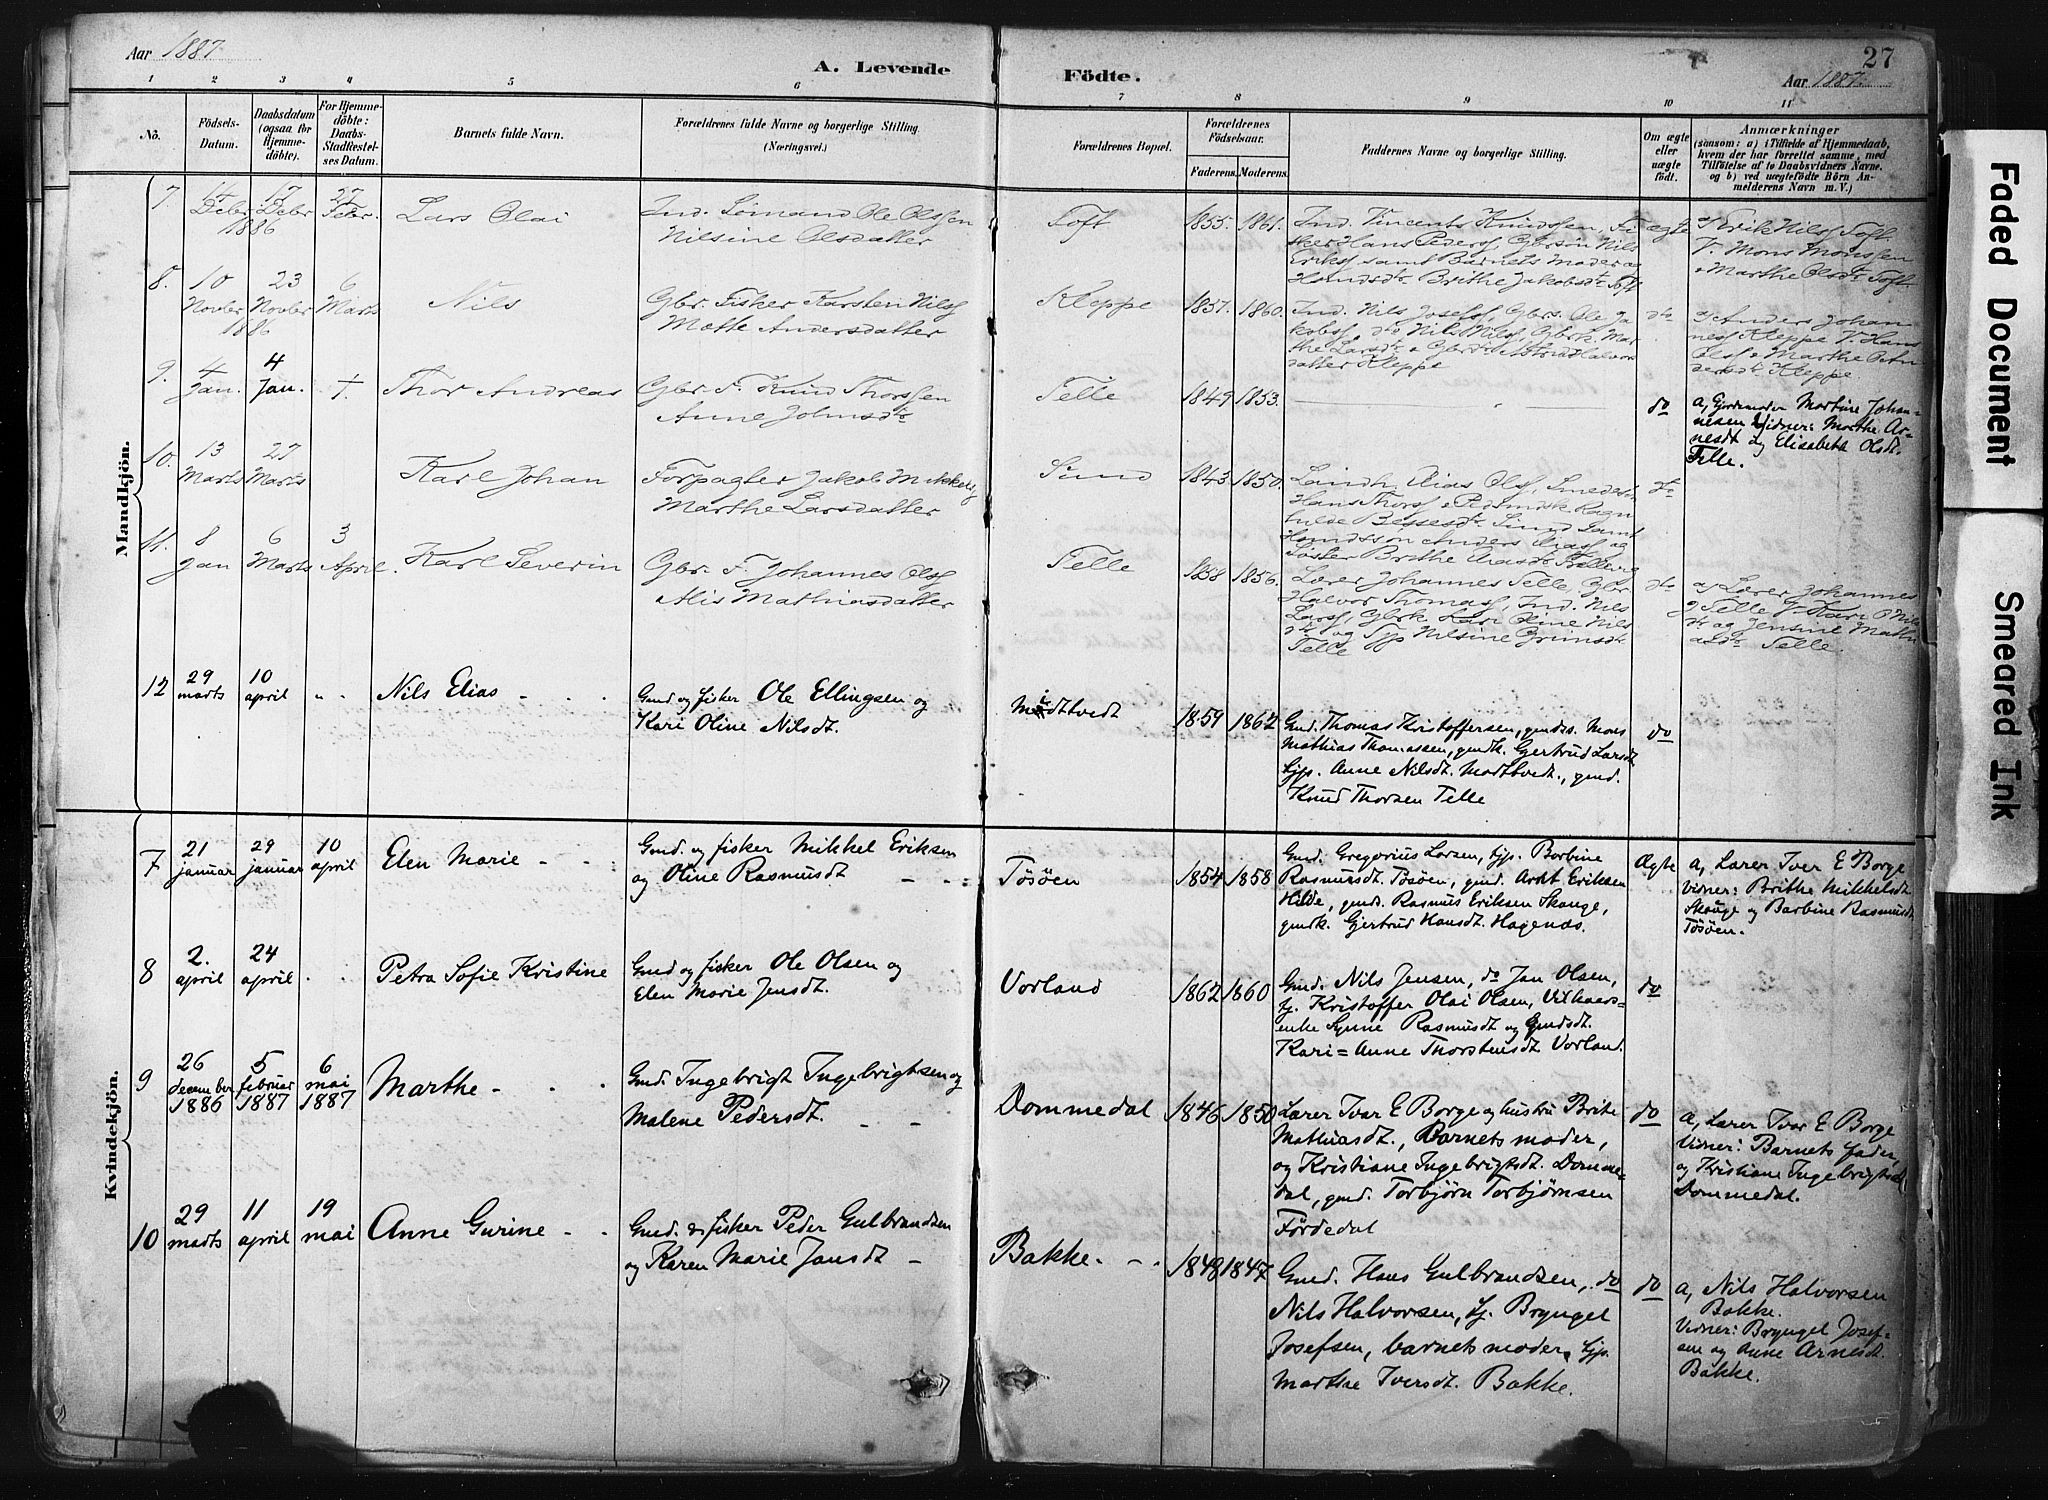 Aar 1887
A. Levende
Födte.
27
Aar 1887
1 2 3 4 5 6 7 8 9 10 11
No.
Födsels-
Datum.
Daabsdatum
(ogsaa for
Hjemme-
döbte).
For Hjemme-
döbte:
Daabs-
Stadfæstel-
ses Datum.
Barnets fulde Navn.
Forældrenes fulde Navne og borgerlige Stilling.
(Næringsvei.)
Forældrenes Bopæl.
Forældrenes
Födselsaar.
Faderens. Moderens.
Faddernes Navne og borgerlige Stilling.
Om ægte
eller
uægte
födt.
Anmærkninger
(saasom: a) i Tilfælde af Hjemmedaab,
hvem der har forrettet samme, med
Tilföielse af to Daabsvidners Navne,
og b) ved uægtefödte Börn An-
melderens Navn m. V.)
Mandkjön.
7
14 Debr 1886
17 Debr
27 Febr.
Lars Olai
Ind. Sömand Ole Olssen
Nilsine Olsdatter
Toft
1855. 1861.
Ind. Vincents Knudssen, Fi
sker Hans Pederss, Gbrsön Nils
Erikss samt Barnets Moder og
Hdts Brithe Jakobsdtr Toft
Ægte
a/ Erik Nilss Toft.
V. Mons Monssen
o Marthe Olsdtr Toft
8.
10 Novbr 1886
23 Novbr
6 Marts
Nils
Gbr. Fisker Karsten Nilss
Mette Andersdatter
Kleppe
1857. 1860.
Ind. Nils Josefss, Gbrs. Ole Ja
kobss, do Nils Nilss, Gbrk. Mar
the Larsdtr o Gbrdtr Astrid Halvors
datter Kleppe
do
a/ Anders Johan
ness Kleppe V. Hans
Olss o Marthe An
dersdtr Kleppe.
9.
4 Jan.
4 Jan.
†.
Thor Andreas
Gbr. F. Knud Thorssen
Anne Johnsdtr
Telle
1849 1853.
do
a, Gjordemoder Martine Johan-
nesen Vidner: Marthe Ar-
nesdt og Elisabeth Olsdt.
Telle.
10.
13 Marts
27 Marts
Karl Johan
Forpagter Jakob Mikkels
Marthe Larsdatter
Sund
1843 1850.
Landh. Elias Olss, Smedes.
Hans Thorss o Ragn
hilde Sund samt
Anders Eliass og
Söster Brithe Eliasdtr
do
11.
8 Jan
6 Marts
3 April.
Karl Severin
Gbr. F. Johannes Olss
Alis Mathiasdatter
Telle
1858 1856.
Lærer Johannes Telle, Gbr
Halvor Thomass, Ind. Nils
Larss, Gbrk. Kari Oline Nils
dtr og Tjp Nilsine Grimsdtr
Telle
do
a/ Lærer Johannes
Telle V. Kari O Nils
dtr og Jensine Mathi
asdtr Telle.
12
29 marts
10 april
" "
Nils Elias
Gmd. og fisker Ole Ellingsen og
Kari Oline Nilsdt.
Midttvedt
1859 1862
Gmd. Thomas Kristoffersen, gmds. Mons
Mathias Thomassen, gmdk. Gjertrud Larsdt.
tjp. Anne Nilsdt. Midttvedt., gmd.
Knud Thorsen Telle
do
Kvindekjön.
7
21 januar
29 januar
10 april
Elen Marie
Gmd. og fisker Mikkel Eriksen
og Oline Rasmusdt
Tösöen
1854 1858
Gmd. Gregorius Larsen, tjp. Barbine
Rasmusdt. Tösöen, gmd. Arnt Eriksen
Hilde, gmds. Rasmus Eriksen Skauge,
gmdk. Gjertrud Hansdt. Hagenæs.
Ægte
a, Lærer Iver E Borge
Vidner: Brithe Mikkelsdt
Skauge og Barbine Rasmusdt
Tösöen.
8
2. april
24 april
Petra Sofie Kristine
Gmd og fisker Ole Olsen og
Elen Marie Jensdt.
Vorland
1862 1860
Gmd. Nils Jensen, do Jan Olsen,
tj. Kristoffer Olai Olsen, Vilkaars=
enke Synne Rasmusdt og Gmdsdt.
Kari=Anne Thorstensdt Vorland.
do
9
26 december 1886
5 februar 1887
6 mai 1887
Marthe
Gmd. Ingebrigt Ingebrigtsen og
Malene Pedersdt.
Dommedal
1846 1850
Lærer Ivar E Borge og hustru Brite
Mathiasdt., Barnets moder,
og Kristiane Ingebrigtsdt. Domme-
dal, gmd. Torbjörn Torbjörnsen
Fördedal
do
a, Lærer Ivar E Borge
Vidner: Barnets fader,
og Kristiane Ingebrigtsdt
Dommedal.
10
29 marts
11 april
19 mai
Anne Gurine
Gmd. og fisker Peder Gulbrandsen
og Karen Marie Jansdt
Bakke
1848 1847
Gmd. Hans Gulbrandsen, do
Nils Halvorsen, tj. Bryngel
Josefsen, barnets moder, tjp.
Marthe Iversdt. Bakke.
do
a, Nils Halvorsen
Bakke.
Vidner: Bryngel Josef-
sen og Anne Arnesdt.
Bakke.
Faded Document
Smeared Ink